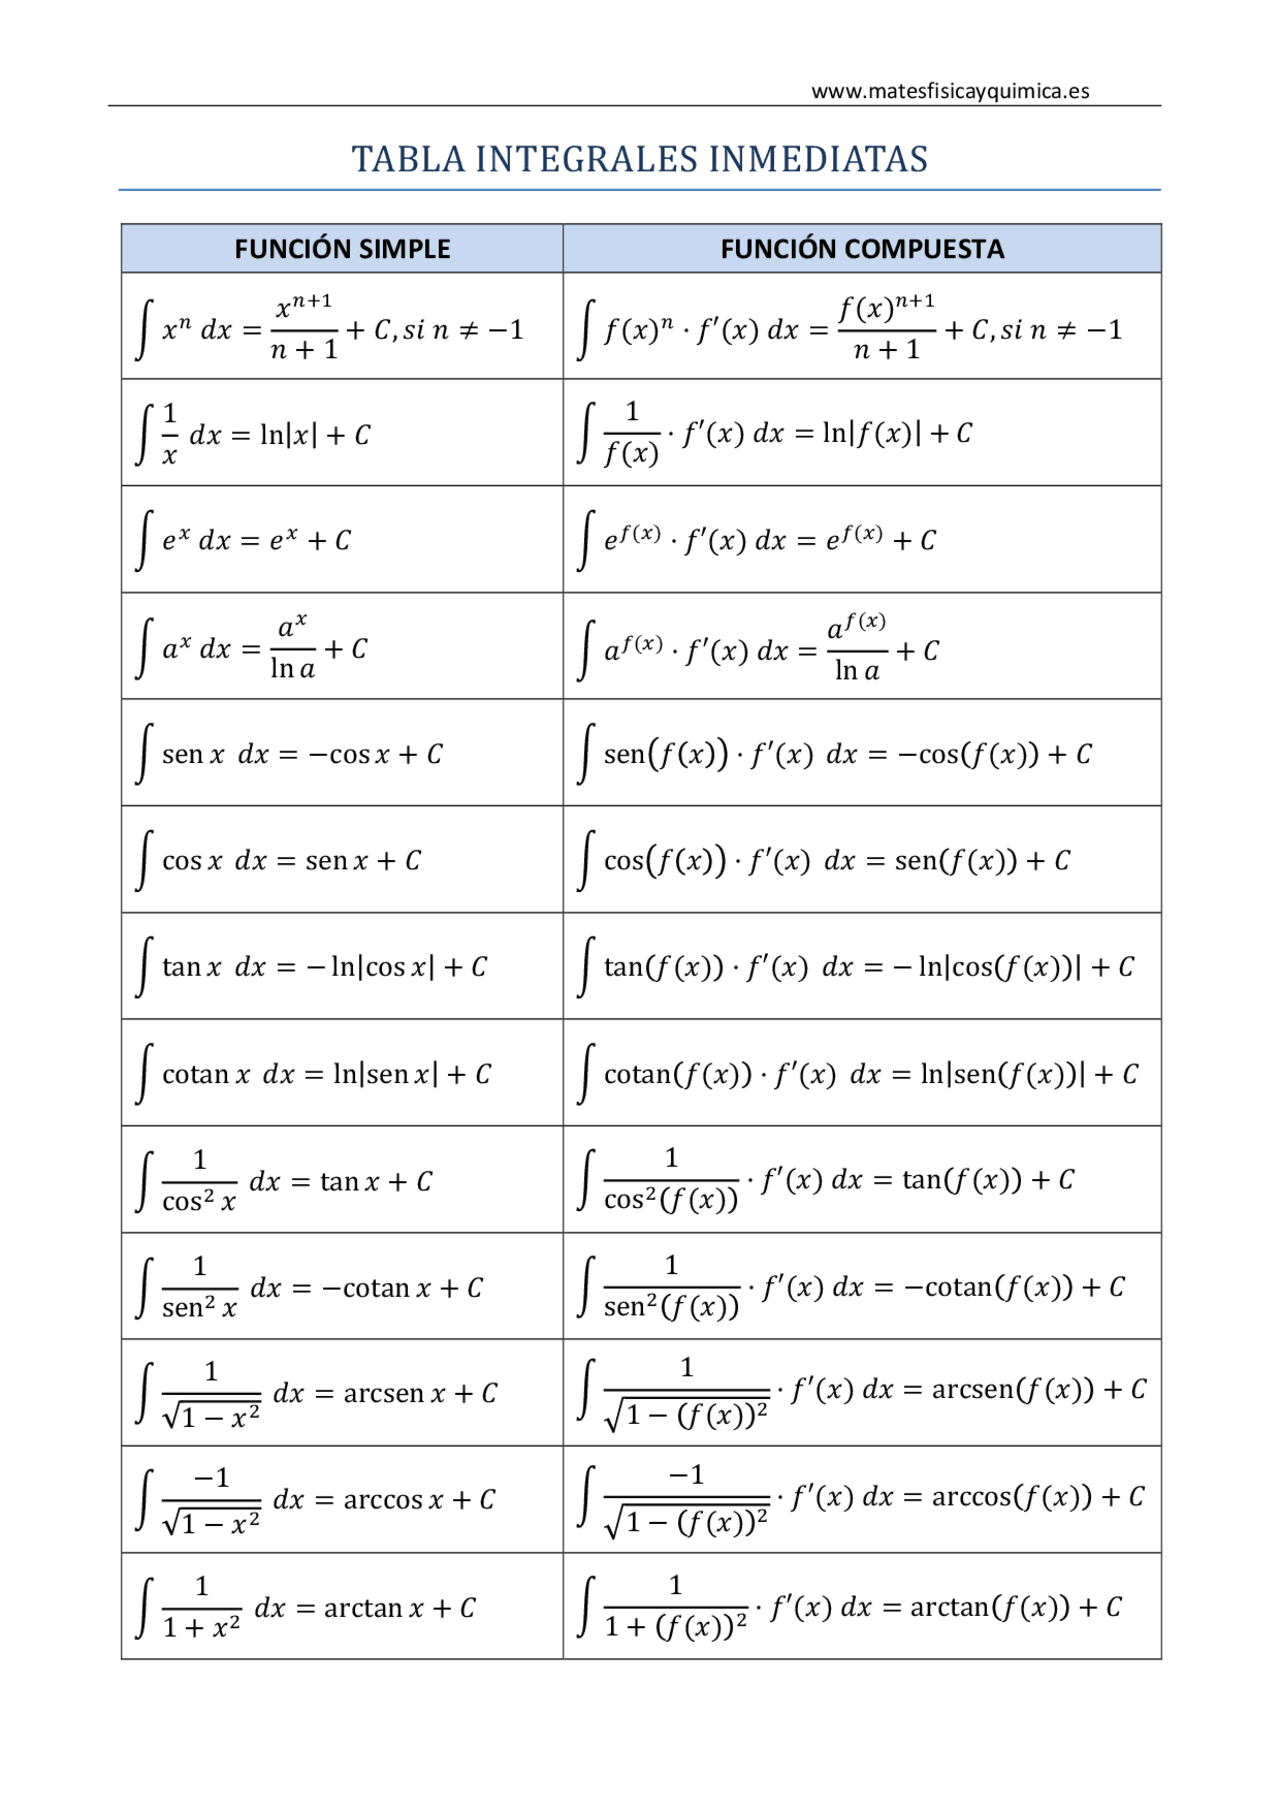 www.matesfisicayquimica.es
TABLA INTEGRALES INMEDIATAS
FUNCIÓN SIMPLE | FUNCIÓN COMPUESTA
∫ xⁿ dx = xⁿ⁺¹/(n + 1) + C, si n ≠ −1 | ∫ f(x)ⁿ · f′(x) dx = f(x)ⁿ⁺¹/(n + 1) + C, si n ≠ −1
∫ 1/x dx = ln|x| + C | ∫ 1/f(x) · f′(x) dx = ln|f(x)| + C
∫ e^x dx = e^x + C | ∫ e^f(x) · f′(x) dx = e^f(x) + C
∫ a^x dx = a^x/ln a + C | ∫ a^f(x) · f′(x) dx = a^f(x)/ln a + C
∫ sen x dx = −cos x + C | ∫ sen(f(x)) · f′(x) dx = −cos(f(x)) + C
∫ cos x dx = sen x + C | ∫ cos(f(x)) · f′(x) dx = sen(f(x)) + C
∫ tan x dx = − ln|cos x| + C | ∫ tan(f(x)) · f′(x) dx = − ln|cos(f(x))| + C
∫ cotan x dx = ln|sen x| + C | ∫ cotan(f(x)) · f′(x) dx = ln|sen(f(x))| + C
∫ 1/cos² x dx = tan x + C | ∫ 1/cos²(f(x)) · f′(x) dx = tan(f(x)) + C
∫ 1/sen² x dx = −cotan x + C | ∫ 1/sen²(f(x)) · f′(x) dx = −cotan(f(x)) + C
∫ 1/√(1 − x²) dx = arcsen x + C | ∫ 1/√(1 − (f(x))²) · f′(x) dx = arcsen(f(x)) + C
∫ −1/√(1 − x²) dx = arccos x + C | ∫ −1/√(1 − (f(x))²) · f′(x) dx = arccos(f(x)) + C
∫ 1/(1 + x²) dx = arctan x + C | ∫ 1/(1 + (f(x))²) · f′(x) dx = arctan(f(x)) + C